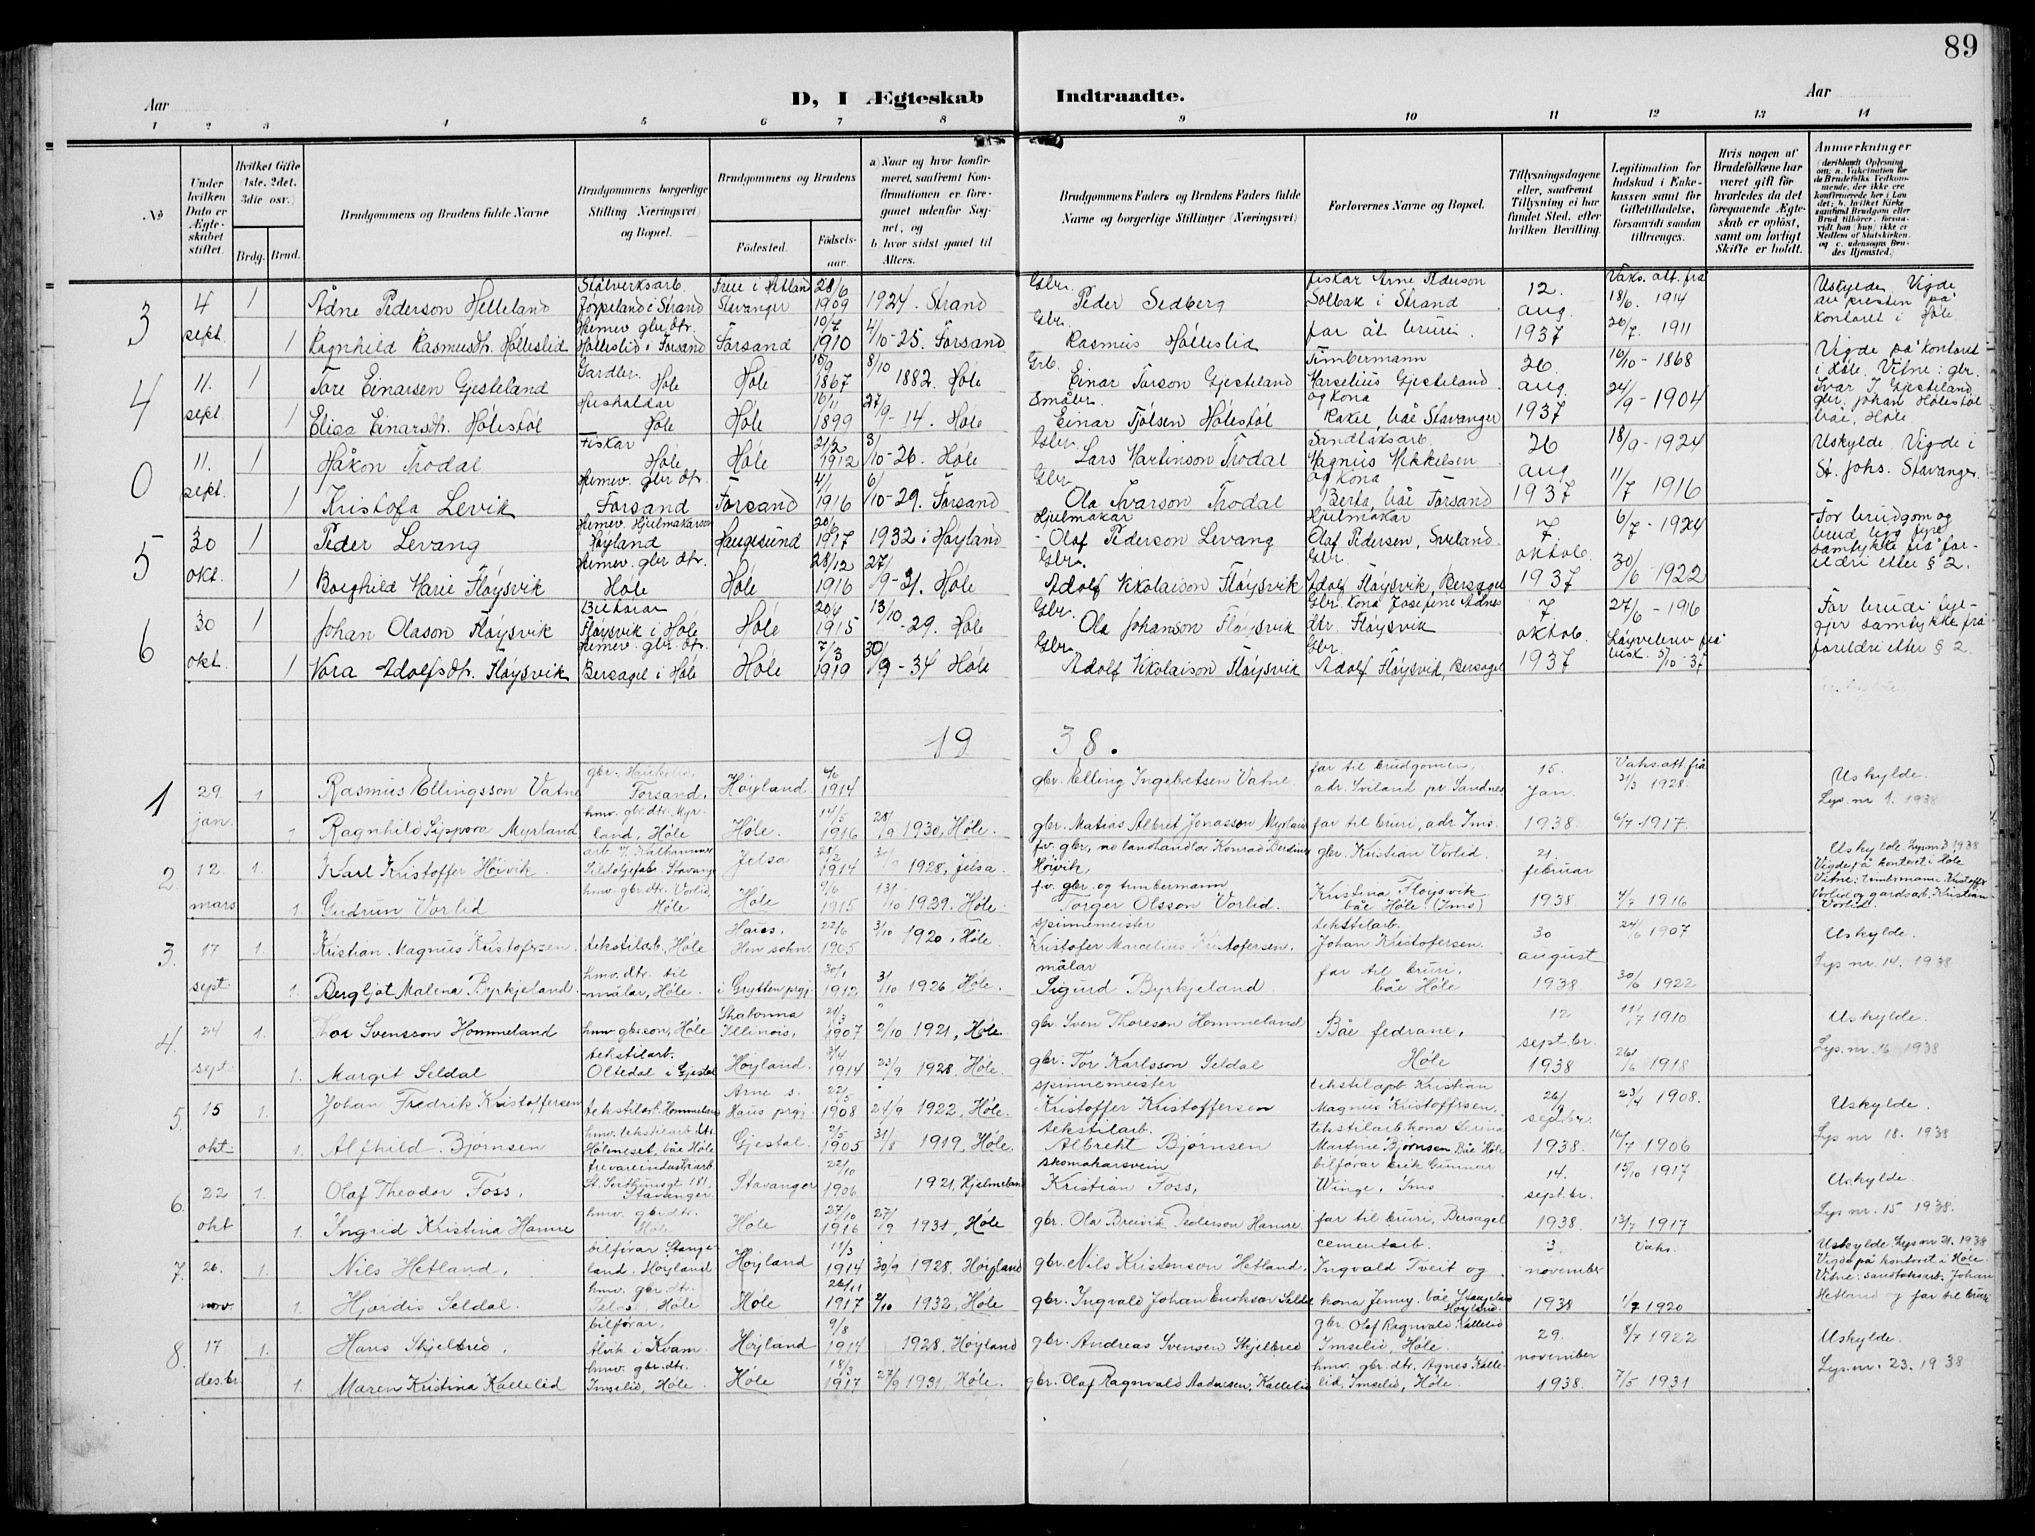 89
Aar
D, I Ægteskab Indtraadte.
Aar
1 2 3 4 5 6 7 8 9 10 11 12 13 14
No
Under hvilken Dato er Ægteskabet stiftet.
Hvilket Gifte (1ste, 2det, 3die osv.)
Brdg. Brud.
Brudgommens og Brudens fulde Navne
Brudgommens borgerlige Stilling (Næringsvei) og Bopæl.
Brudgommens og Brudens
Fødested.
Fødselsaar.
a) Naar og hvor konfirmeret, saafremt Konfirmationen er foregaaet udenfor Sognet, og
b hvor sidst gaaet til Alters.
Brudgommens Faders og Brudens Faders fulde Navne og borgerlige Stillinger (Næringsvei)
Forlovernes Navne og Bopæl.
Tillysningsdagene eller, saafremt Tillysning ei har fundet Sted, efter hvilken Bevilling.
Legitimation for Indskud i Enkekassen samt for Giftetilladelse, forsaavidt saadan tiltrænges.
Hvis nogen af Brudefolkene har været gift før hvorledes da det foregaaende Ægteskab er opløst, samt om lovligt Skifte er holdt.
Anmerkninger
(deriblandt Oplysning om: a. Vakcination for de Brudefolks Vedkommende, der ikke ere konfirmerede her i Landet; b. hvilket Kirkesamfund Brudgom eller Brud tilhører, forsaavidt han (hun) ikke er Medlem af Statskirken, og c. udensogns Brudes Hjemsted.
3 4 sept. 1 Ådne Pederson Helleland Stålverksarb. Jørpeland i Strand Stavanger 28/6 1909 1924. Strand Gbr. Peder Sedberg fiskar Arne Pederson Solbak i Strand 12. aug. 1937 Vaks. att. frå 18/6. 1914 Uskylde. Vigde av presten på kontoret i Høle
1 Ragnhild Rasmusdtr. Hølleslid Heimev. gbr. dtr. Hølleslid i Forsand Forsand 10/7 1910 4/10 - 25. Forsand Gbr. Rasmus Hølleslid far åt bruri. 20/7. 1911
4 11. sept. 1 Tore Einarsen Gjesteland Gardbr. Høle Høle 15/9 1867 8/10 1882. Høle Grb. Einar Torson Gjesteland Timbermann Marselius Gjesteland og kona Rakel, båe Stavanger 26. aug. 1937 16/10 - 1868 Vigde på kontoret i Høle. Vitne: gbr. Ivar J. Gjesteland gbr. Johan Hølestøl båe, Høle
1 Elisa Einarsdtr. Hølestøl Hushaldar Høle Høle 16/11 1899 27/9 - 14. Høle Småbr. Einar Tjølsen Hølestøl 24/9 - 1904
0 11. sept. 1 Håkon Trodal Fiskar Høle Høle 21/2 1912 3/10 - 26. Høle Gbr. Lars Martinson Trodal Sandtaksarb. Magnus Mikkelsen og kona Berta, båe Forsand 26 aug 1937 18/9 - 1924 Uskylde. Vigde i St. Johs. Stavanger.
1 Kristofa Levik Heimev. gbr. dtr. Forsand Forsand 4/1 1916 6/10 - 29. Forsand Gbr. Ola Ivarson Trodal 11/7 1916
5 30 okt. 1 Peder Levang Heimev. Hjulmakarson Høyland Haugesund 1917 1932 i Høyland Hjulmakar Olaf Pederson Levang Hjulmakar Olaf Pedersen, Sviland. 7 oktob. 1937 6/7 - 1924 For brudgom og brud ligg fyre samtykke frå foreldri etter § 2.
1 Borghild Marie Fløysvik Heimev. gbr. dtr. Høle Høle 28/12 1916 27/9 - 31. Høle Gbr. Adolf Nikolaison Fløysvik Gbr. Adolf Fløysvik, Bersagel 30/6 - 1922
6 30 okt. 1 Johan Olason Fløysvik Bilførar Fløysvik i Høle Høle 1915 13/10 - 29. Høle Gbr. Ola Johanson Fløysvik Gbr. kona Josefine Adnesdtr. Fløysvik 7 oktob. 1937 27/6 - 1916 For bruri fylgjer samtykke frå foreldri etter § 2.
1 Nora Adolfsdtr. Fløysvik Heimev. gbr. dtr. Bersagel i Høle Høle 7/3 1919 30/9 - 34 Høle Gbr. Adolf Nikolaison Fløysvik Gbr. Adolf Fløysvik, Bersagel Løyvebrev frå 5/10 - 37
19 38.
1 29. jan. 1 Rasmus Ellingsson Vatne gbr. Haukelid, Forsand. Høyland 1914 gbr. Elling Ingebretsen Vatne far til brudgomen, adr. Sviland pr. Sandnes 15. Jan. 1938. Vaks. att. frå 21/3 1928. Uskylde. Lys. nr 1. 1938
1 Ragnhild Sippora Myrland hmv. gbr. dtr. Myrland, Høle Høle. 14/5 1916 28/9 1930, Høle. gbr. Matias Albret Jonasson Myrland far til bruri, adr Ims. 6/7 1917.
2. 12. mars 1. Karl Kristoffer Høivik. Jelsa 1914 1928, Jelsa fv. gbr., no landhandlar Konrad Berdines Høivik, gbr. Kristian Vorlid. 21. februar 1938. Uskylde. Lys nr 3 1938 Vigde på kontoret i Høle Vitne: timbermann Kristoffer Vorlid og gardsarb. Kristian Vorlid.
1. Gudrun Vorlid hmv. gbr. dtr. Vorlid, Høle Høle 9/6 1915 13/10 1929. Høle. fv. gbr. og timbermann Torger Olsson Vorlid. Kristina Fløysvik båe Høle (Ims) 4/7 1916
3. 17 sept. 1. Kristian Magnus Kristofersen. tekstilarb. Høle Haus, 22/6 1905 3/10 1920, Høle. spinnemeister Kristofer Marcelius Kristofersen. tekstilarb. Johan Kristofersen. 30 august 1938. 24/6 1907 Uskylde. Lys nr. 14. 1938
1. Bergljot Malena Byrkjeland. hmv. dtr. til målar, Høle. i Grytten prgj. 30/1 1912 3/10 1926, Høle. målar Sigurd Byrkjeland. far til bruri, båe Høle 30/6 1922
4. 24 sept. 1. Tor Svensson Hommeland hmv. gbr. son, Høle Illinois, 21/3 1907 2/10 1921, Høle gbr. Sven Thoresen Hommeland Båe fedrane, Høle 12 sept.br. 1938 11/7 1910 Uskylde. Lys. nr. 16 1938
1. Margit Seldal tekstilarb. Oltedal i Gjestal Høyland. 3/4 1914 23/9 1928, Høle. gbr. Tor Karlsson Seldal 26/6 1918
5. 15 okt. 1. Johan Fredrik Kristoffersen tekstilarb. Hommeland Arne s. Haus prgj. 22/5 1908 24/9 1922, Høle. spinnemeister Kristoffer Kristoffersen tekstilarb Kristian Magnus Kristoffersen. septbr. 1938. 23/4 1908. Uskylde. Lys nr 18. 1938
1. Alfhild Bjørnsen hmv. tekstilarb. dtr. Høleneset, båe Høle Gjestal. 2/5 1905 31/8 1919, Høle. tekstilarb. Albrekt Bjørnsen tekstilarb. kona Serina Martine Bjørnsen Båe Høle 16/7 1906
6. 22 okt 1. Olaf Theodor Foss, trevareindustriarb. Stavanger Stavanger 22/10 1906 1921, Hjelmeland skomakarsvein Kristian Foss, bilførar Erik Gunnar Winge, Ims 14. sept.br. 1938. 15/10 1917 Uskylde. Lys nr. 15 1938.
1. Ingrid Kristina Hamre hmv. gbr. dtr. Høle Høle 27/10 1916 27/9 1931, Høle gbr. Ola Breivik Pederson Hamre. far til bruri, Bersagel 13/7 1917
7. 26. nov. 1. Nils Hetland, bilførar Stangeland, Høyland Høyland 11/3 1914 30/9 1928, Høyland gbr. Nils Kristenson Hetland, cementarb. Ingvald Tveit og kona Jenny, båe Stangeland Høyland. 3. november 1938 Vaks. Uskylde. Lys nr 21. 1938 Vigde på kontoret i Høle. Vitne: sandtaksarb. Johan Hetland og far til bruri
1. Hjørdis Seldal. hmv. gbr. dtr. Høle Høle 26/11 1917 2/10 1932, Høle gbr. Ingvald Johan Enokson Seldal 1/7 1920
8. 17 des.br 1. Hans Skjelbred, bilførar, Ålvik i Kvam Høyland 9/8 1914 1928, Høyland gbr. Andreas Svensen Skjelbred gbr. Olaf Ragnvald Kallelid Imselid, Høle. 29. november 1938. 8/7 1922 Uskylde. Lys. nr. 23. 1938
1. Maren Kristina Kallelid hmv. gbr. dtr. Imselid, Høle. Høle 18/3 1917 27/9 1931, Høle. gbr. Olaf Ragnvald Andersen, Kallelid hmv. gbr. dtr. Agnes Kallelid, Imselid, Høle. 7/5 1931